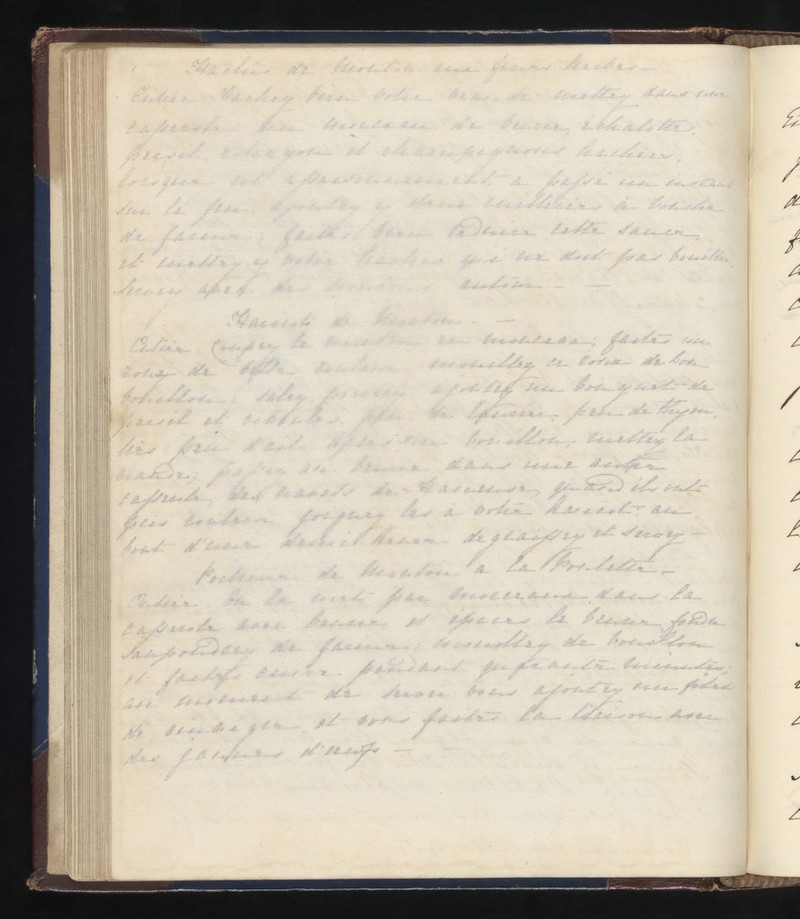 Hachis de Mouton aux fines herbes —
Entier Hachez bien votre mettez dans une
casserole un morceau de beurre, échalottes,
persil, et champignons hachées,
lorsque cet assaisonnement a passé un instant
sur le feu, ajoutez y deux cuillières à bouche
de farine; faites bien réduire cette sauce,
et mettez y votre hachis qui ne doit pas bouillir
Servez avec des autour — —
Haricot de Mouton — —
Entier Coupez le mouton en morceaux; faites un
roux de belle couleur mouillez ce roux de bon
bouillon, salez, poivrez ajoutez un bouquet de
persil et ciboules, peu de laurier, peu de thym,
très peu d'ail, après un bouillon, mettez la
viande; passez au beurre dans une autre
casserole des navets de quand ils ont
pris couleur joignez les à votre haricot: au
bout d'une demie heure dégraissez et servez —
Poitrine de Mouton a la Poulette —
Entier. On la met par morceaux dans la
casserole avec beurre et épices le beurre fondu
saupoudrez de farine; mouillez de bouillon
et faites cuire pendant quarante minutes;
au moment de servir vous ajoutez un filet
de vinaigre et vous faites la liaison avec
des jaunes d'œufs —